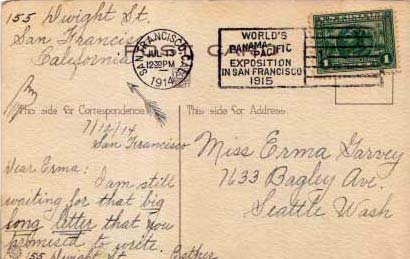 155 Dwight St.
San Francisco
California
SAN FRANCISCO, CAL.
JUL 13
12:30 PM
1914
WORLD'S
PANAMA-PACIFIC
EXPOSITION
IN SAN FRANCISCO
1915
1
This side for Correspondence
This side for Address.
7/12/14
San Francisco
Dear Erma:
I am still
waiting for that big
long letter that you
promised to write.
Esther
55 Dwight St.
Miss Erma Garvey
7633 Bagley Ave.
Seattle Wash